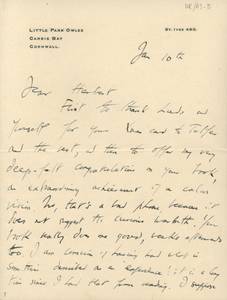 Little Park Owles
Carbis Bay
Cornwall.
St. Ives 490.
Jan 10th
Dear Herbert
First to thank Ludo and
yourself for your kind card to Telfer
and the rest, and then to offer my very
deep-felt congratulations on your book,
an extraordinary achievement of a calm
vision. No, that's a bad phrase, because it
does not suggest the enormous warmth. Your
book really does me good, weeks afterwards
too. I am conscious of having had what is
sometimes described as an experience: it is a long
time since I had that from reading. I suppose